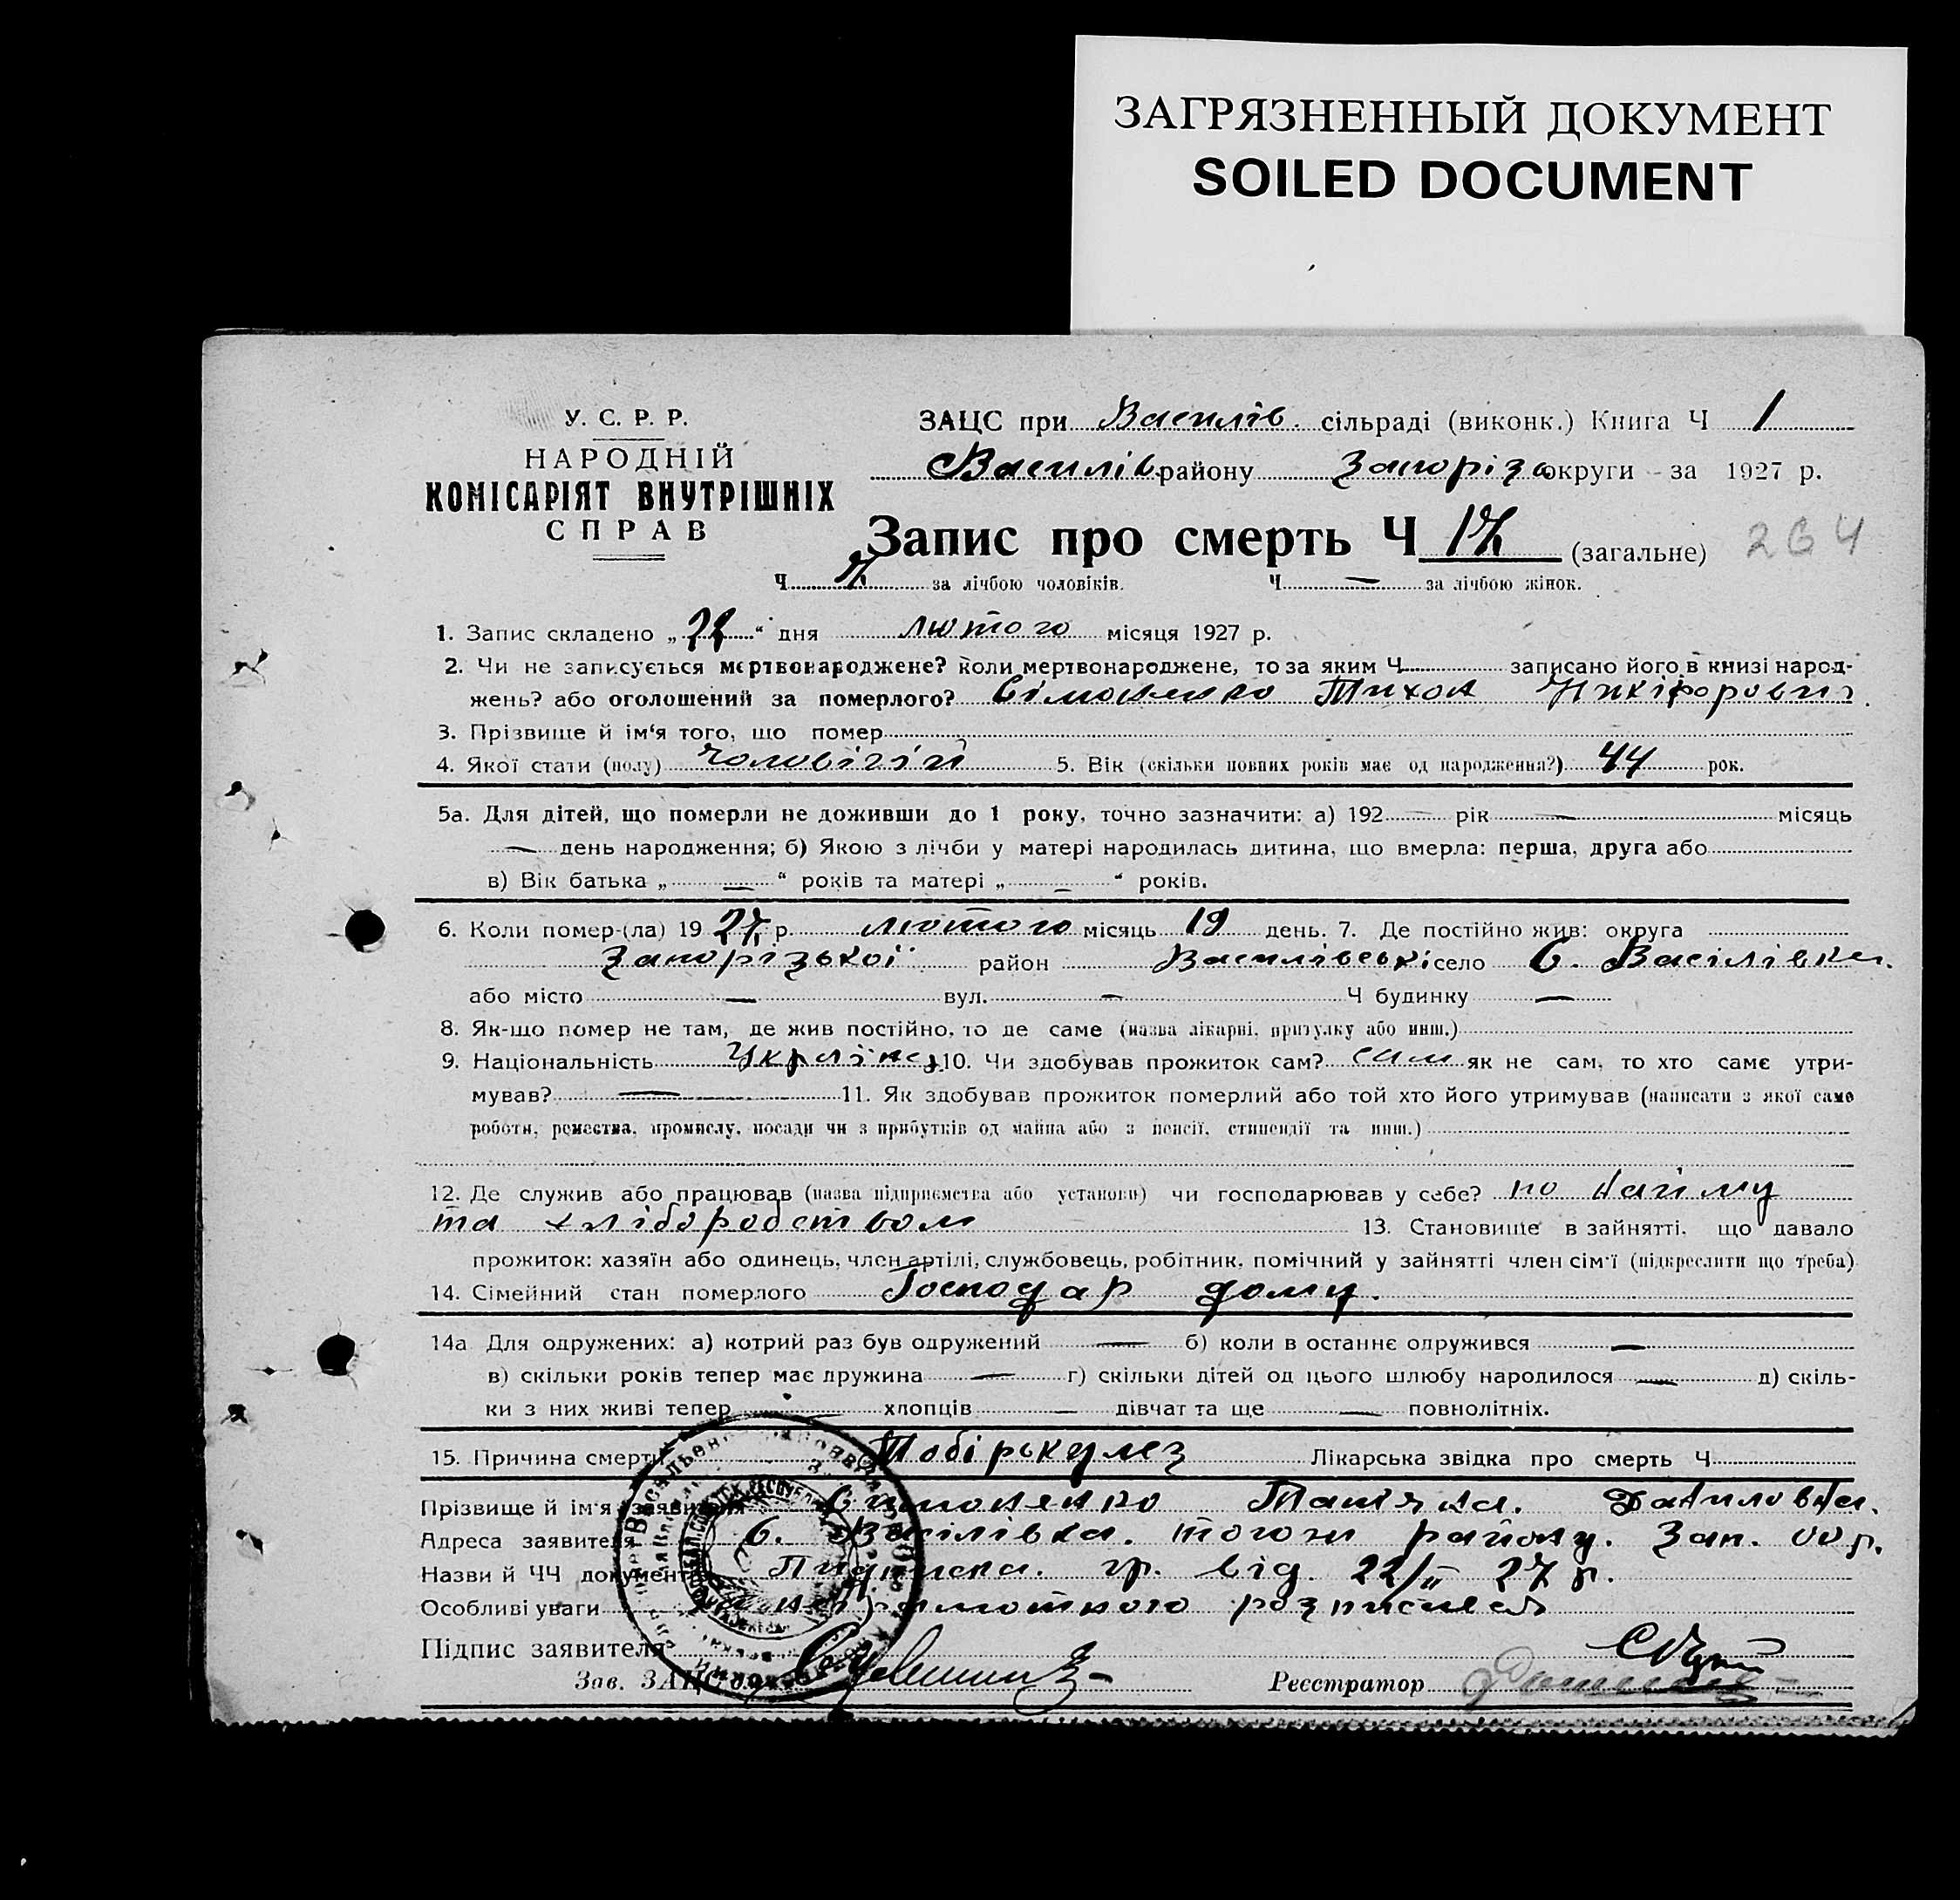 ЗАГРЯЗНЕННЫЙ ДОКУМЕНТ
SOILED DOCUMENT
У. С. Р. Р.
НАРОДНІЙ
КОМІСАРІЯТ ВНУТРІШНІХ
СПРАВ
ЗАЦС при Василів. сільраді (виконк.) Книга Ч 1
Василів району Запоріз округи - за 1927 р.
Запис про смерть Ч 17 (загальне) 264
Ч 7 за лічбою чоловіків. Ч — за лічбою жінок.
1. Запис складено „22“ дня лютого місяця 1927 р.
2. Чи не записується мертвонароджене? коли мертвонароджене, то за яким Ч записано його в книзі народ-
жень? або оголошений за померлого? Сімоненко Тихон Никіфорович
3. Прізвище й ім‘я того, що помер
4. Якої стати (полу) чоловічій 5. Вік (скільки повних років має од народження?) 44 рок.
5а. Для дітей, що померли не доживши до 1 року, точно зазначити: а) 192 — рік — місяць
— день народження; б) Якою з лічби у матері народилась дитина, що вмерла: перша, друга або
в) Вік батька „ — “ років та матері „ — “ років.
6. Коли помер-(ла) 19 27 р. лютого місяць 19 день. 7. Де постійно жив: округа
Запорізької район Василівські село С. Василівка.
або місто — вул. — Ч будинку —
8. Як-що помер не там, де жив постійно, то де саме (назва лікарні, притулку або инш.)
9. Національність Україне 10. Чи здобував прожиток сам? сам як не сам, то хто саме утри-
мував? — 11. Як здобував прожиток померлий або той хто його утримував (написати з якої саме
роботи, ремества, промислу, посади чи з прибутків од майна або з пенсії, стипендії та инш.)
12. Де служив або працював (назва підприємства або установи) чи господарював у себе? по найму
та хліборобством 13. Становище в зайнятті, що давало
прожиток: хазяїн або одинець, член артілі, службовець, робітник, помічний у зайнятті член сім‘ї (підкреслити що треба)
14. Сімейний стан померлого Господар дому.
14а Для одружених: а) котрий раз був одружений — б) коли в останнє одружився —
в) скільки років тепер має дружина — г) скільки дітей од цього шлюбу народилося — д) скіль-
ки з них живі тепер — хлопців — дівчат та ще — повнолітніх.
15. Причина смерти Тобіркулез Лікарська звідка про смерть Ч
Прізвище й ім‘я заявителя Симоненко Татяна. Даниловна.
Адреса заявителя с. Васілівка. того ж району. Зап. окр.
Назви й ЧЧ документів Підписка. гр. від. 22/II 27 р.
Особливі уваги неграмотного розписався
Підпис заявителя
Зав. ЗАЦС Реєстратор